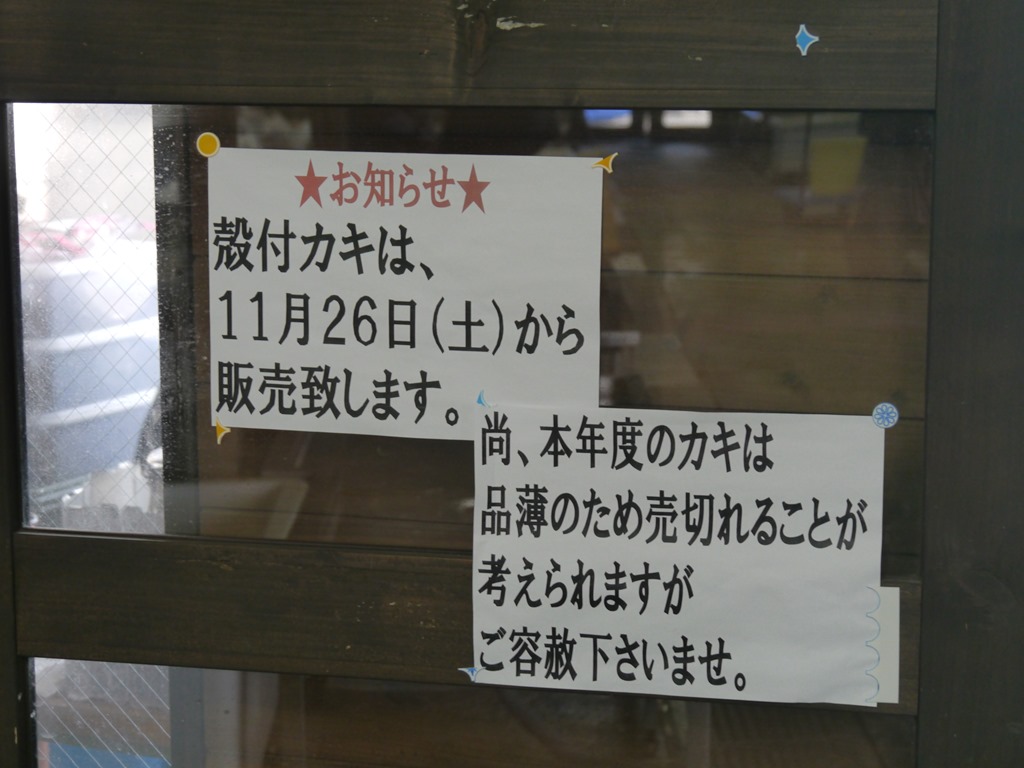 ★お知らせ★
殻付カキは、
11月26日(土)から
販売致します。
尚、本年度のカキは
品薄のため売切れることが
考えられますが
ご容赦下さいませ。